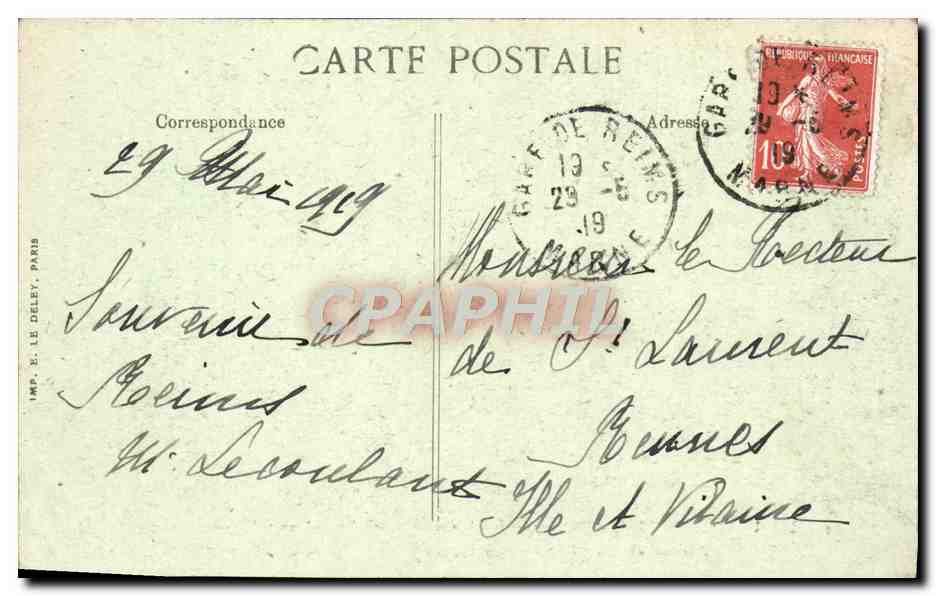 CARTE POSTALE
Correspondance
29 Mai 1919
Souvenir de
Reims
M. Lecoulant
Adresse
Monsieur le Recteur
de St Laurent
Rennes
Ille et Vilaine
GARE DE REIMS
19
29 -5
19
MARNE
GARE DE REIMS
19
29 -5
19
MARNE
REPUBLIQUE FRANCAISE
10
POSTES
IMP. E. LE DELEY, PARIS
CPAPHIL